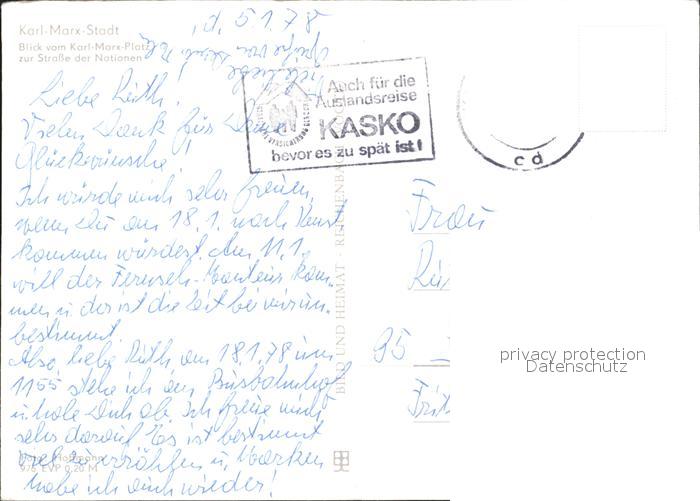 Karl-Marx-Stadt
Blick vom Karl-Marx-Platz
zur Straße der Nationen
, d. 5.1.78
viele liebe
Auch für die
Auslandsreise
KASKO
bevor es zu spät ist!
c d
Liebe Ruth!
Vielen Dank für Deine
Glückwünsche!
Ich würde mich sehr freuen,
wenn Du am 18.1. nach Karl
kommen würdest. Am 11.1.
will der Fernseh-Monteur kom-
men u. da ist die Zeit bei mir un-
bestimmt.
Also, liebe Ruth am 18.1.78 um
11 55 stehe ich am Busbahnhof
u. hole Dich ab. Ich freue mich
sehr darauf. Es ist bestimmt
viel zu erzählen u. Marken
habe ich auch wieder!
Foto: Hoffmann
976 EVP 0,20 M
BILD UND HEIMAT · REICHENBACH
Frau
Ru
95
Frit
privacy protection
Datenschutz